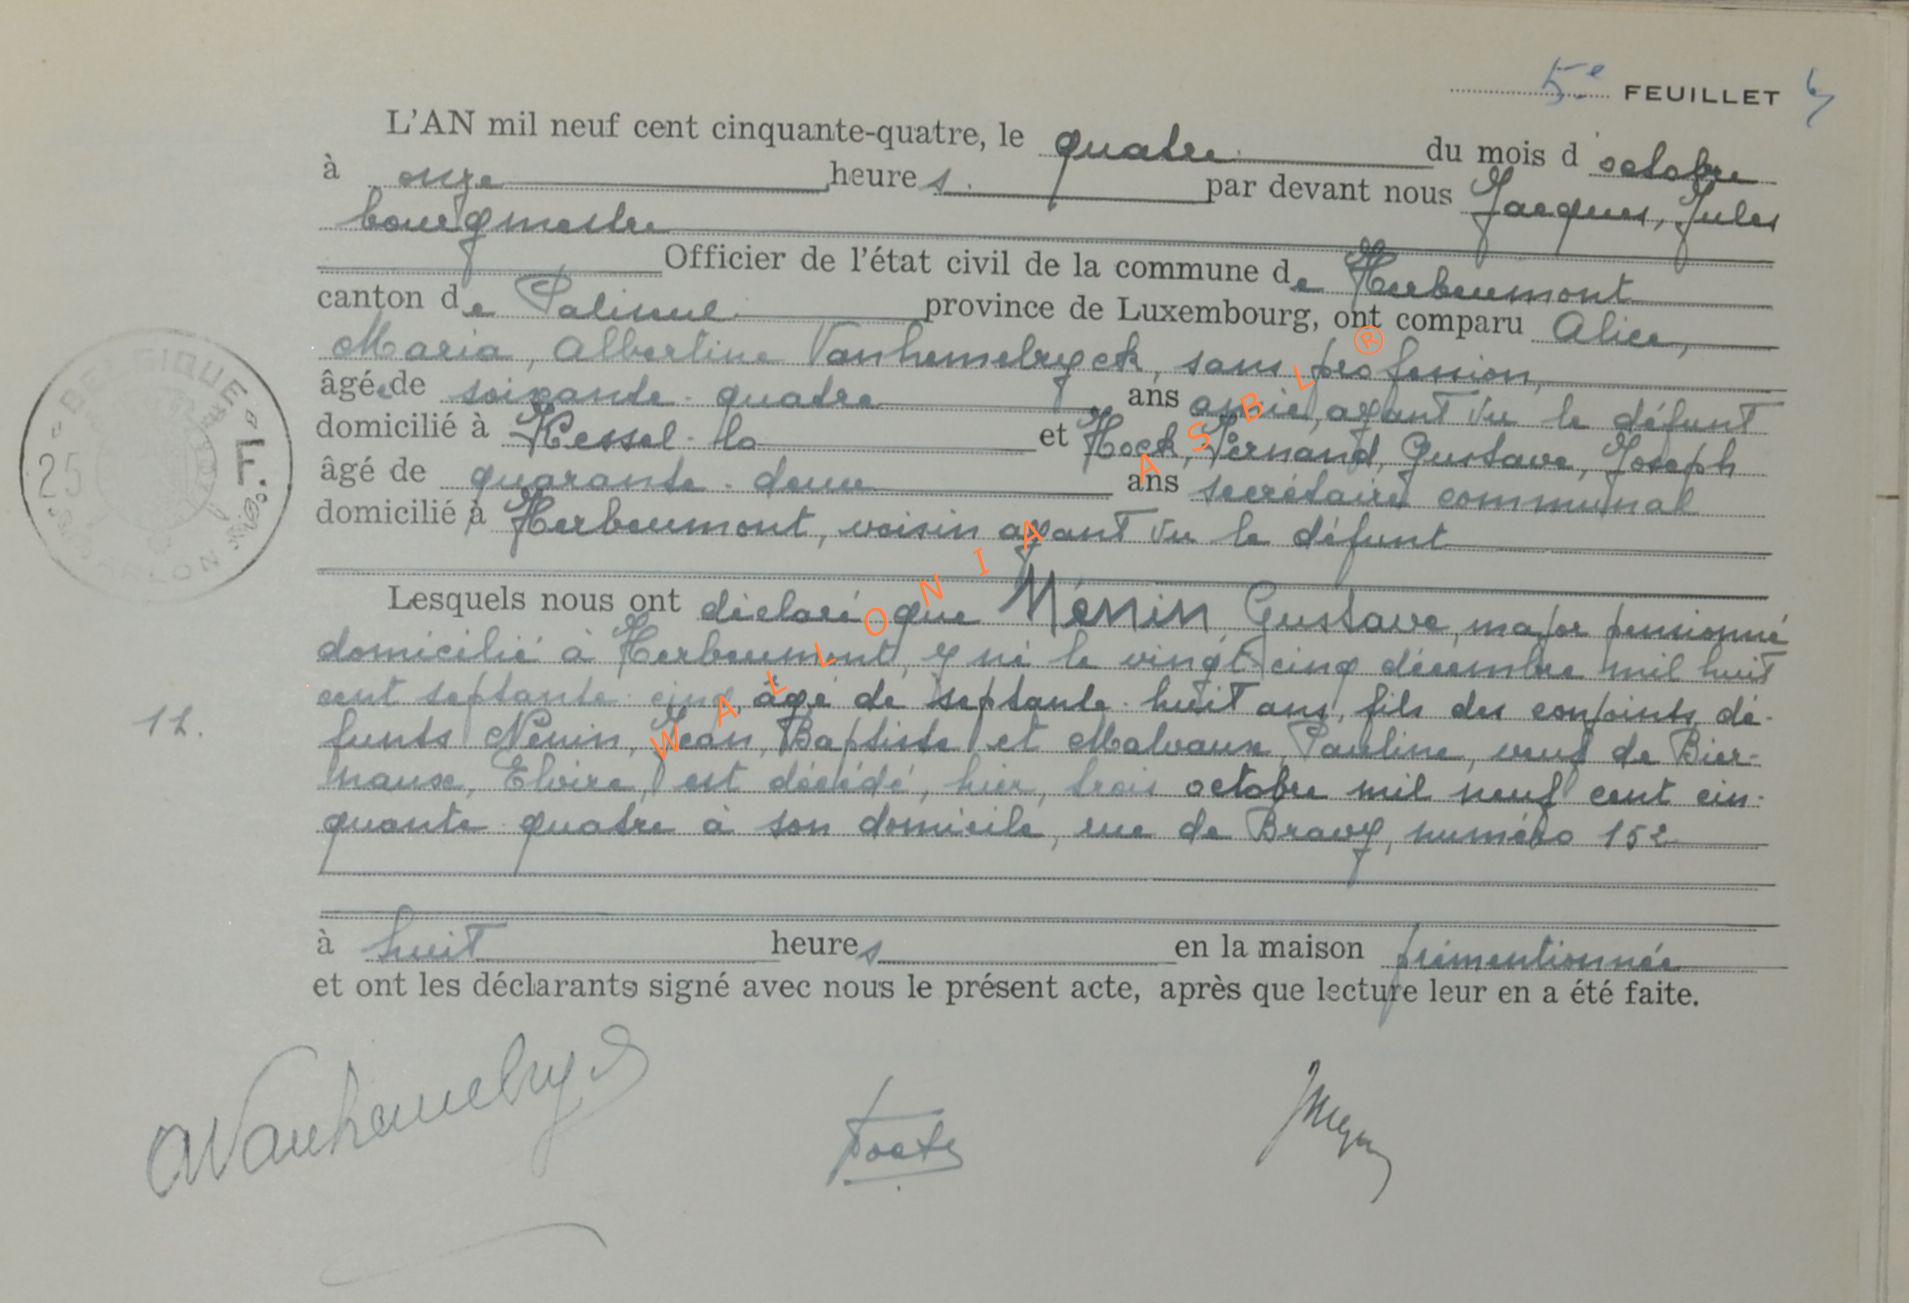 5e FEUILLET
L'AN mil neuf cent cinquante-quatre, le quatre du mois d'octobre
à onze heures par devant nous Jacques, Jules
bourgmestre
Officier de l'état civil de la commune de Herbeumont
canton de Paliseul province de Luxembourg, ont comparu Alice,
Maria, Albertine Vanhemelryck, sans profession,
âgée de soixante-quatre ans amie, ayant vu le défunt
domicilié à Kessel-lo et Hock, Fernand, Gustave, Joseph
âgé de quarante-deux ans secrétaire communal
domicilié à Herbeumont, voisin ayant vu le défunt
Lesquels nous ont déclaré que Nénin, Gustave, major pensionné
domicilié à Herbeumont, y né le vingt-cinq décembre mil huit
cent septante-cinq, âgé de septante-huit ans, fils des conjoints dé-
funts Nénin, Jean, Baptiste et Malvaux, Pauline, veuf de Bier-
maux, Elvire, est décédé, hier, trois octobre mil neuf cent cin-
quante-quatre à son domicile, rue de Bravy, numéro 152
à huit heures en la maison prémentionnée
et ont les déclarants signé avec nous le présent acte, après que lecture leur en a été faite.
12.
BELGIQUE
25
ARLON
AVanhemelryck
WALLONIA ASBL ®